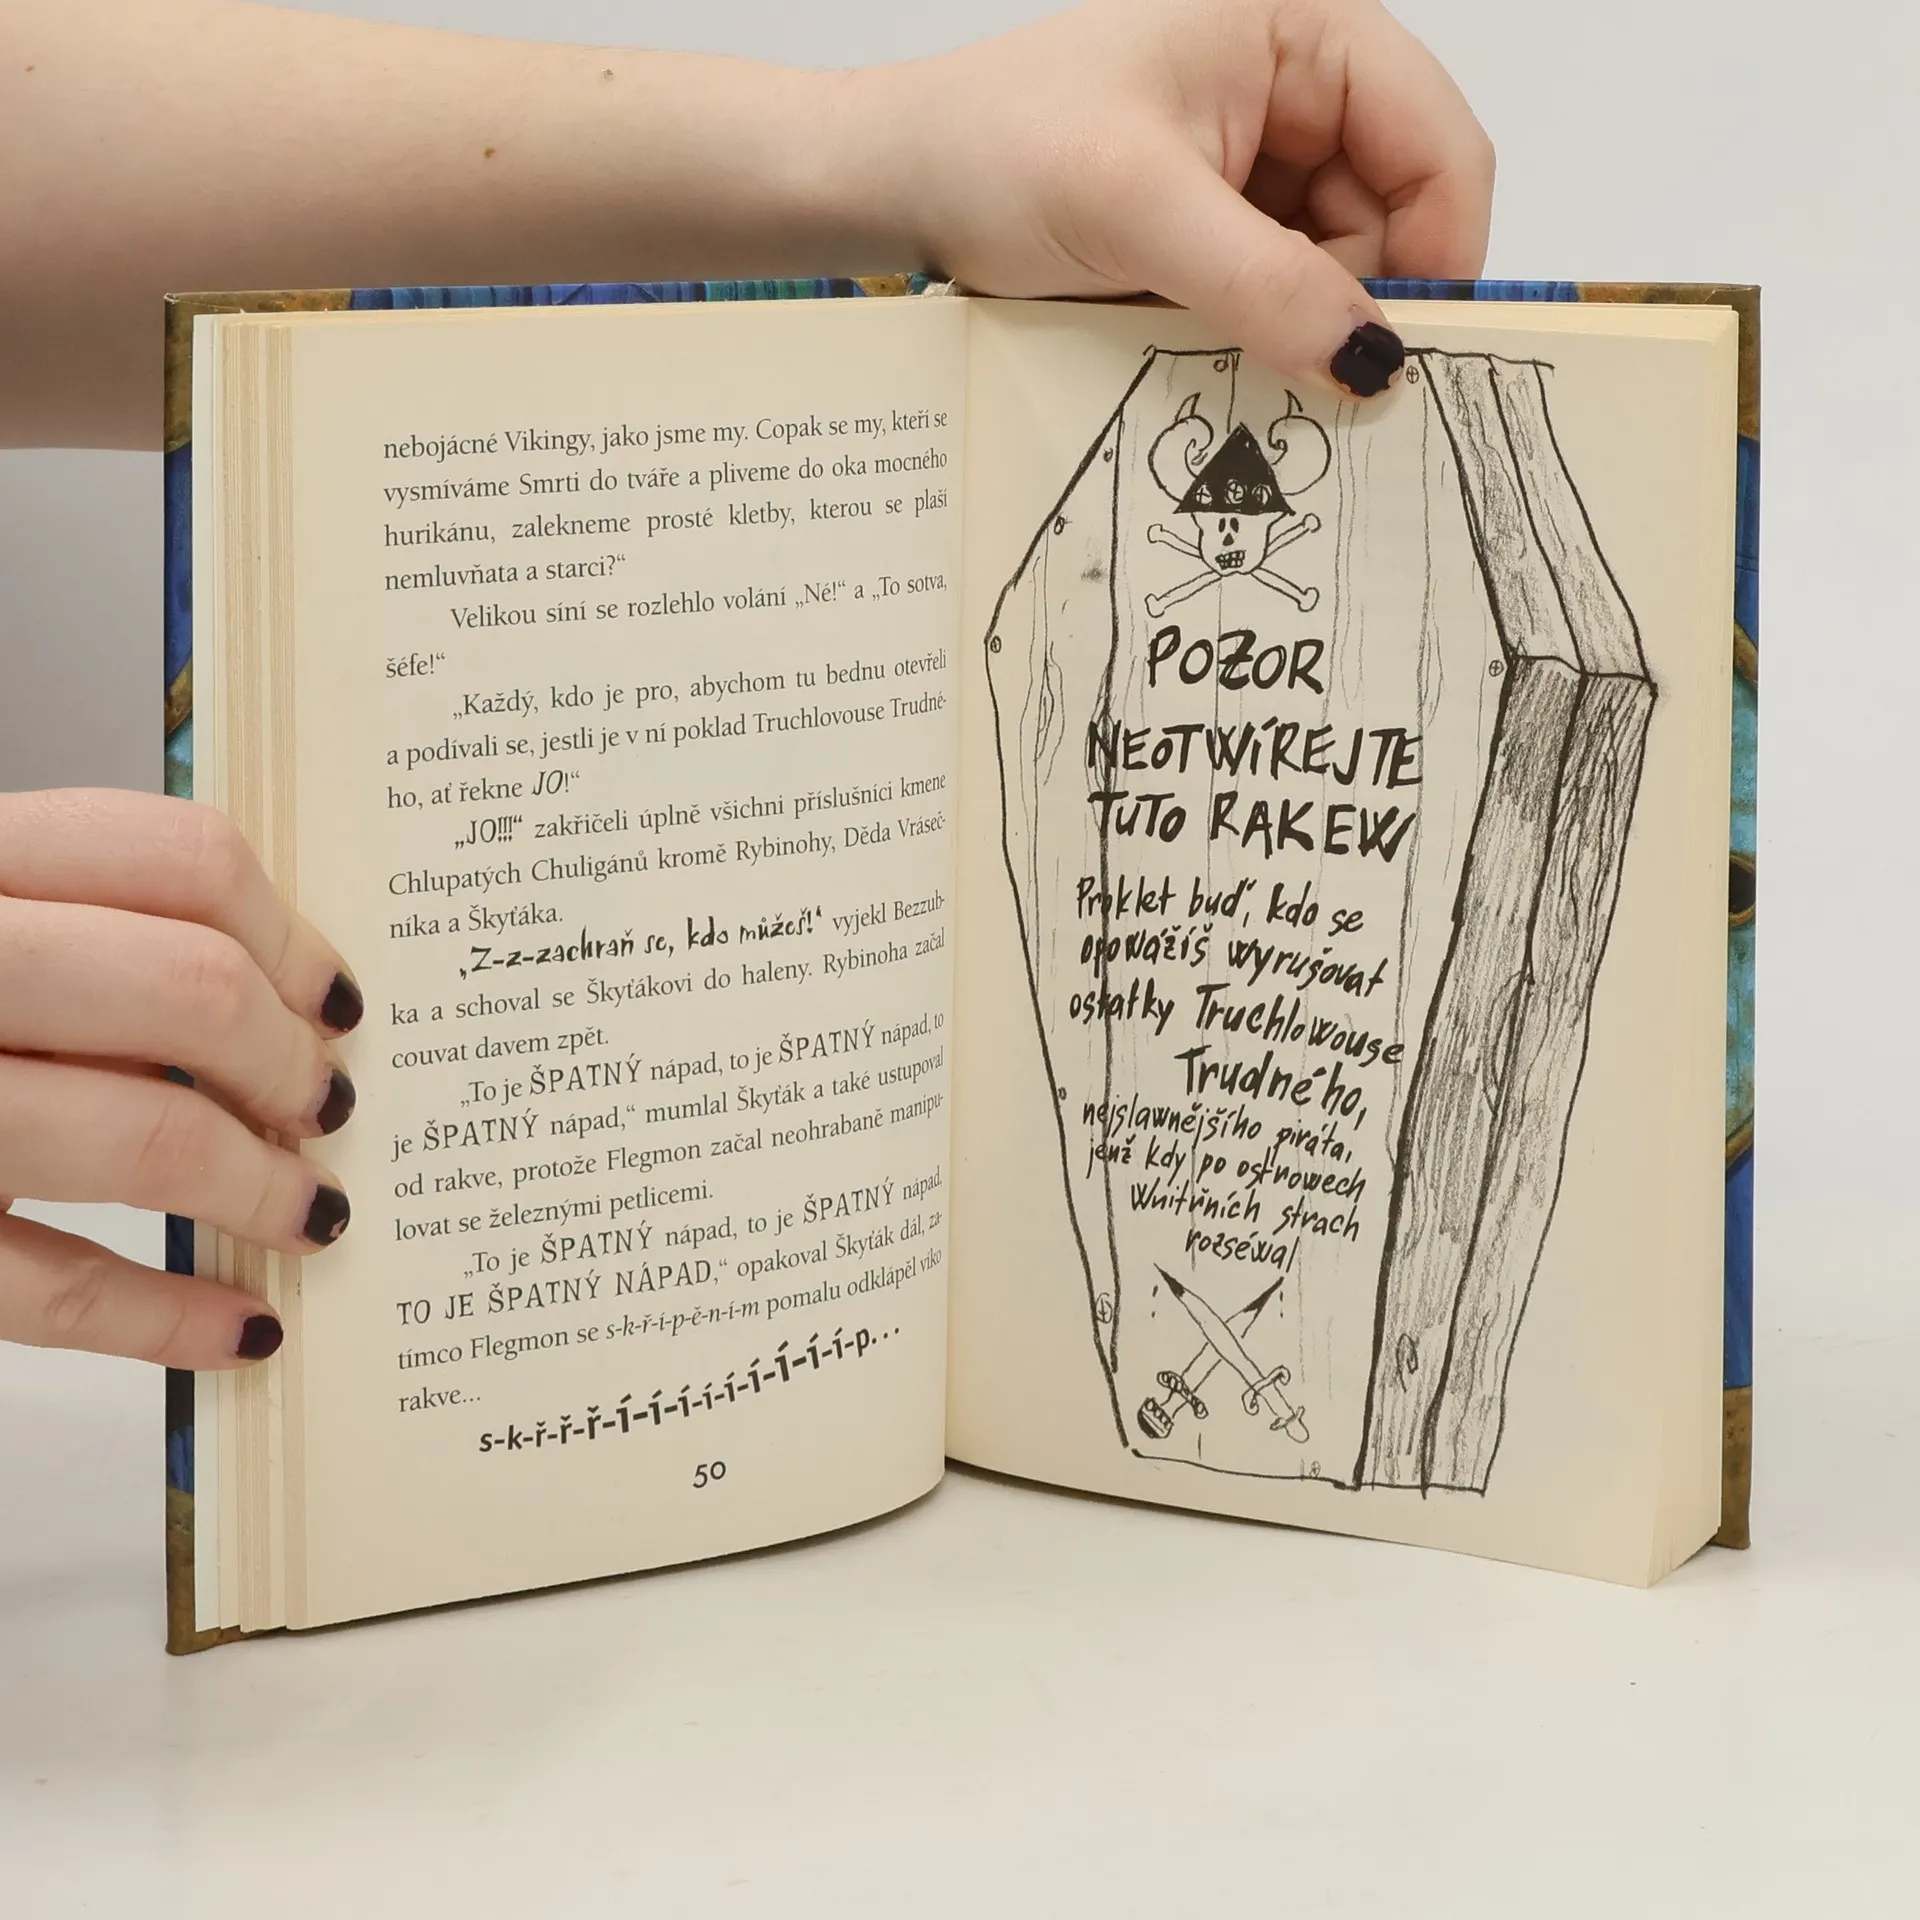 nebojácné Vikingy, jako jsme my. Copak se my, kteří se
vysmíváme Smrti do tváře a pliveme do oka mocného
hurikánu, zalekneme prosté kletby, kterou se plaší
nemluvňata a starci?“
Velikou síní se rozlehlo volání „Né!“ a „To sotva,
šéfe!“
„Každý, kdo je pro, abychom tu bednu otevřeli
a podívali se, jestli je v ní poklad Truchlovouse Trudné-
ho, ať řekne JO!“
„JO!!!“ zakřičeli úplně všichni příslušníci kmene
Chlupatých Chuligánů kromě Rybinohy, Děda Vráseč-
níka a Škyťáka.
„Z-z-zachraň se, kdo můžeš!“ vyjekl Bezzub-
ka a schoval se Škyťákovi do haleny. Rybinoha začal
couvat davem zpět.
„To je ŠPATNÝ nápad, to je ŠPATNÝ nápad, to
je ŠPATNÝ nápad,“ mumlal Škyťák a také ustupoval
od rakve, protože Flegmon začal neohrabaně manipu-
lovat se železnými petlicemi.
„To je ŠPATNÝ nápad, to je ŠPATNÝ nápad,
TO JE ŠPATNÝ NÁPAD,“ opakoval Škyťák dál, za-
tímco Flegmon se s-k-ř-í-p-ě-n-í-m pomalu odklápěl víko
rakve...
s-k-ř-ř-ř-í-í-í-í-í-í-í-í-í-p...
50
POZOR
NEOTWÍREJTE
TUTO RAKEW
Proklet buď, kdo se
opowážíš wyrušovat
ostatky Truchlowouse
Trudného,
nejslawnějšího piráta,
jenž kdy po ostrowech
Wnitřních strach
rozséwal